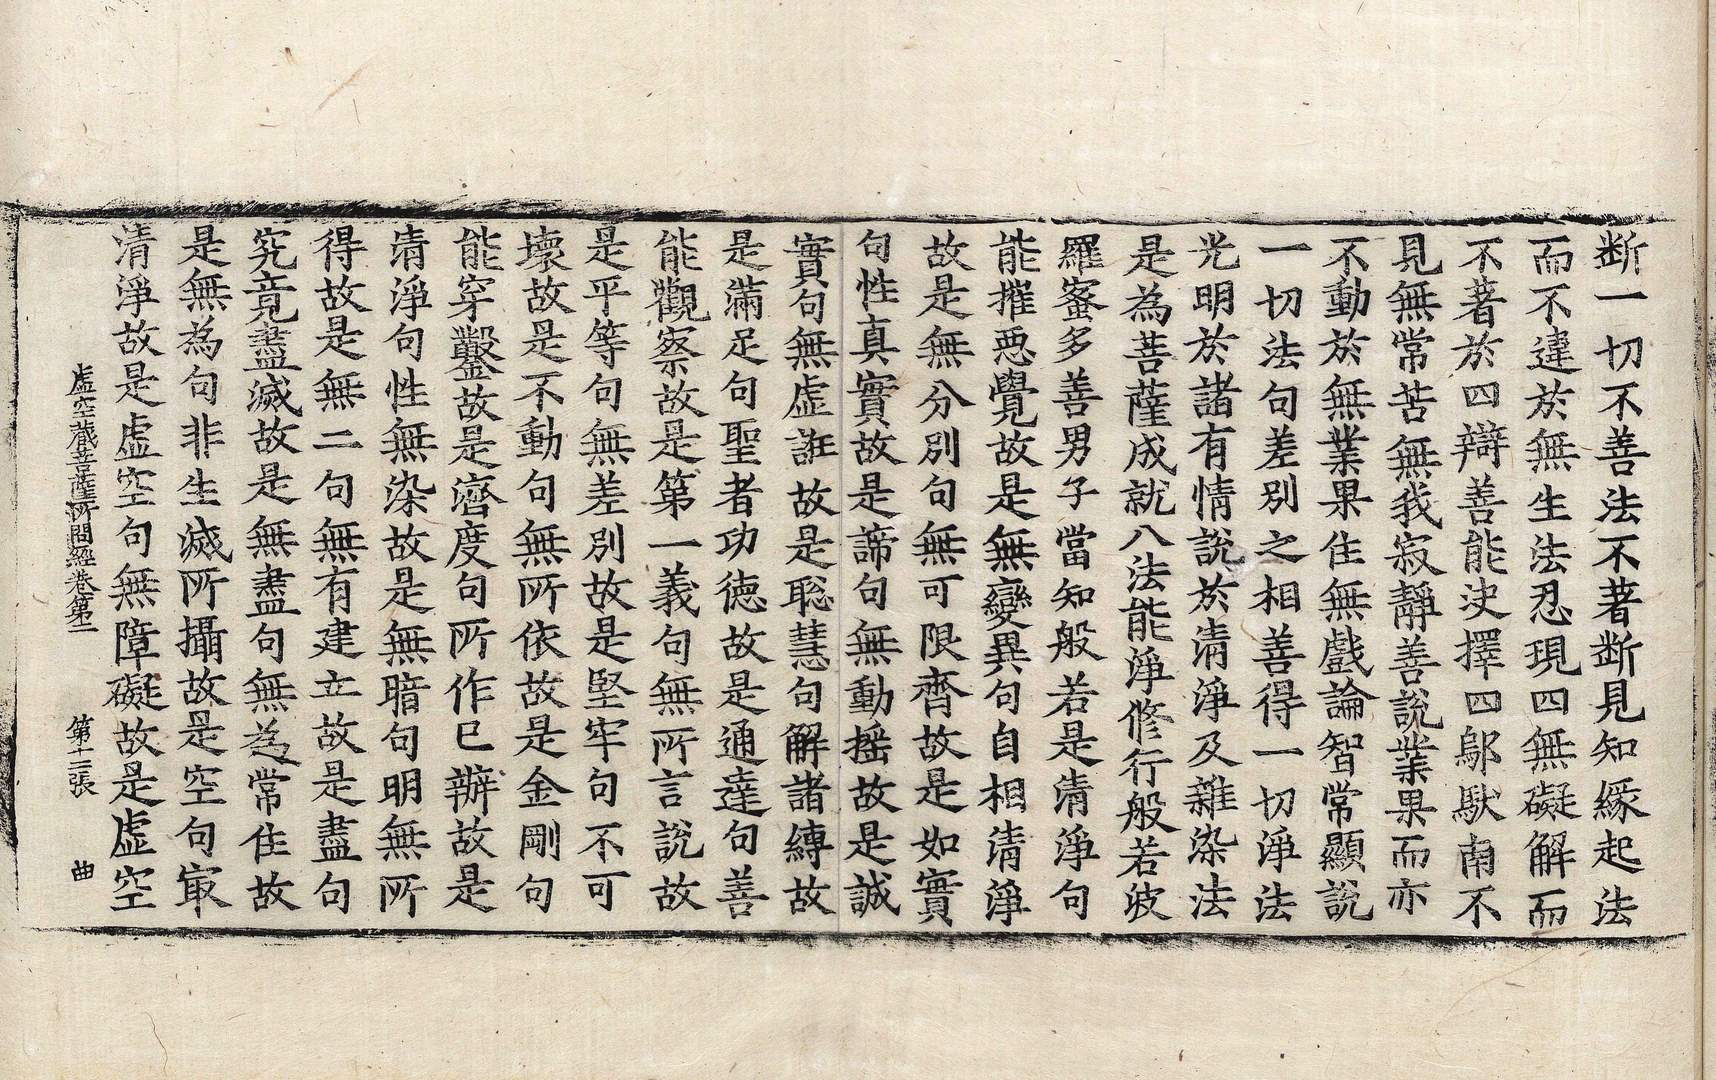 断一切不善法不著断見知縁起法
而不違於無生法忍現四無礙解而
不著於四辯善能決擇四鄔馱南不
見無常苦無我寂靜善說業果而亦
不動於無業果住無戲論智常顯說
一切法句差别之相善得一切淨法
光明於諸有情說於清淨及雜染法
是為菩薩成就八法能淨修行般若波
羅蜜多善男子當知般若是清淨句
能摧惡覺故是無變異句自相清淨
故是無分別句無可限齊故是如實
句性真實故是諦句無動搖故是誠
實句無虛誑故是聡慧句解諸縛故
是滿足句聖者功德故是通達句善
能觀察故是第一義句無所言說故
是平等句無差別故是堅牢句不可
壞故是不動句無所依故是金剛句
能穿鑿故是濟度句所作已辦故是
清淨句性無染故是無暗句明無所
得故是無二句無有建立故是盡句
究竟盡滅故是無盡句無為常住故
是無為句非生滅所攝故是空句㝡
清淨故是虛空句無障礙故是虛空
虛空藏菩薩所問經卷第二 第十二張 曲